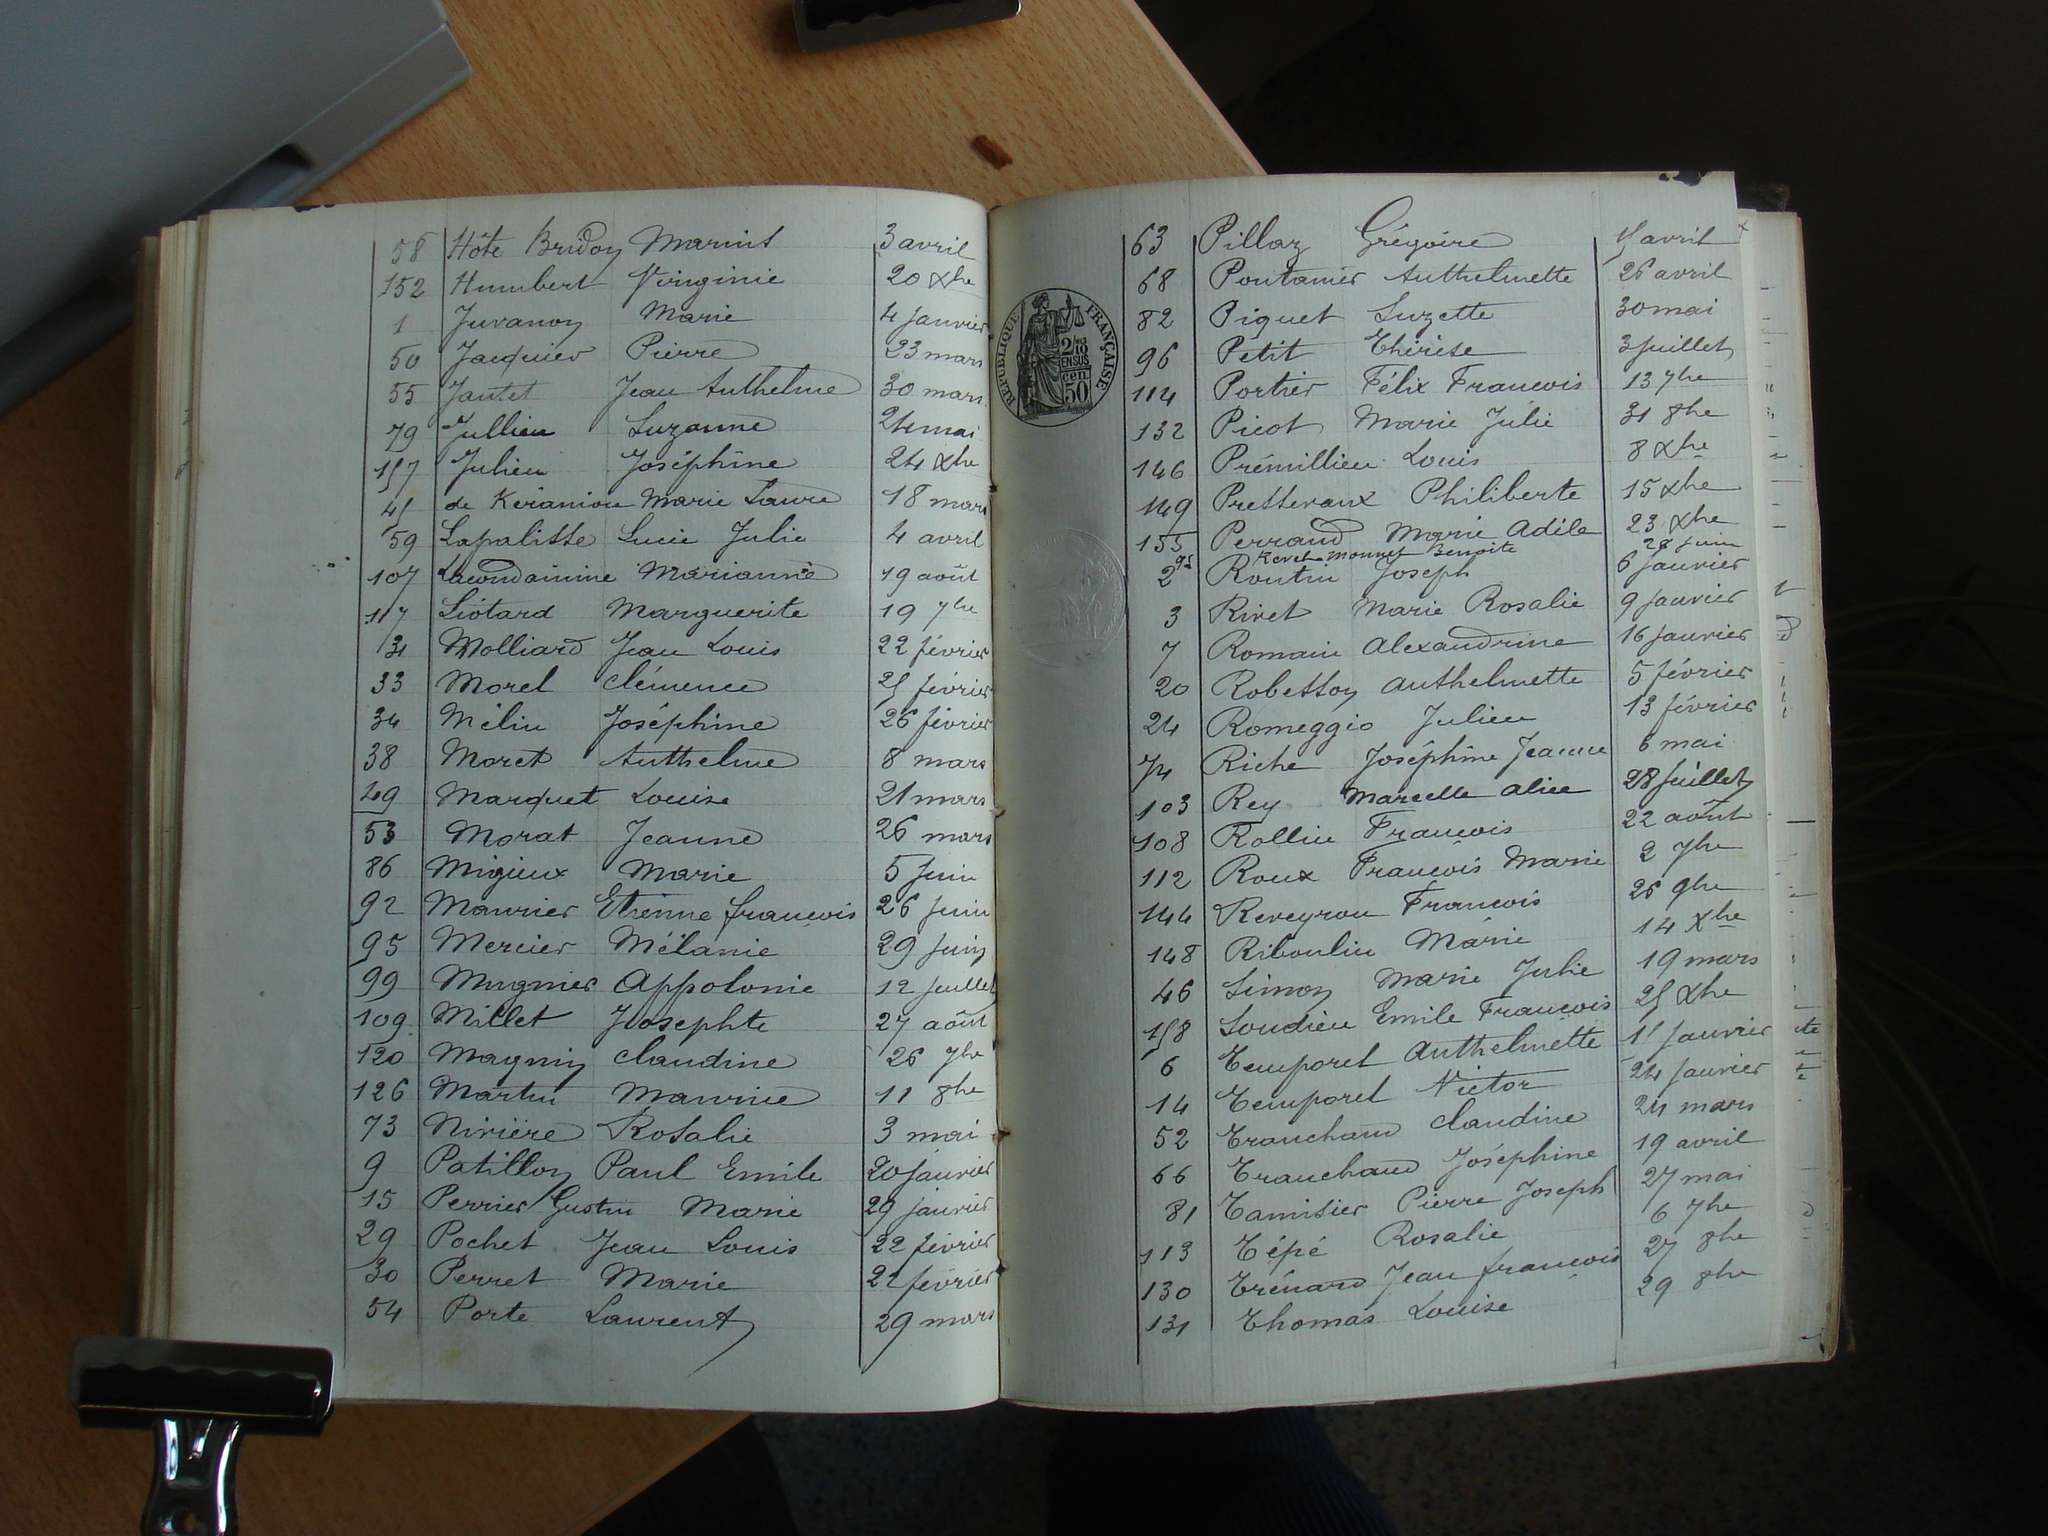 58 Hôte Bridon Marius 3 avril
152 Humbert Virginie 20 Xbre
1 Juvanon Marie 4 janvier
50 Jacquier Pierre 23 mars
55 Jantet Jean Anthelme 30 mars
79 Jullien Suzanne 24 mai
157 Julien Joséphine 24 Xbre
45 de Kerianiou Marie Laure 18 mars
59 Lapalisse Lucie Julie 4 avril
107 Lacondainine Marianne 19 août
117 Liotard Marguerite 19 7bre
31 Molliard Jean Louis 22 février
33 Morel Clémence 25 février
34 Mélin Joséphine 26 février
38 Moret Anthelme 8 mars
49 Marquet Louise 21 mars
53 Morat Jeanne 26 mars
86 Migieux Marie 5 juin
92 Maurier Etienne françois 26 juin
95 Mercier Mélanie 29 juin
99 Mugnier Appolonie 12 juillet
109 Millet Josephte 27 août
120 Magnin Claudine 26 7bre
126 Martin Maurice 11 8bre
73 Nivière Rosalie 3 mai
9 Patillon Paul Emile 20 janvier
15 Perrier Gustin Marie 29 janvier
29 Pochet Jean Louis 22 février
30 Perret Marie 22 février
54 Porte Laurent 29 mars
REPUBLIQUE FRANÇAISE
2/10 EN SUS
50 cen
63 Pillaz Grégoire 15 avril
68 Pontanier Anthelmette 26 avril
82 Piquet Suzette 30 mai
96 Petit Thérèse 3 juillet
114 Portier Félix François 13 7bre
132 Picot Marie Julie 31 8bre
146 Prémillieu Louis 8 Xbre
149 Pressevaux Philiberte 15 Xbre
155 Perraud Marie Adèle 23 Xbre
Monnet Benoite juin
2 Routin Joseph 6 janvier
3 Rivet Marie Rosalie 9 janvier
7 Romain Alexandrine 16 janvier
20 Robesson Anthelmette 5 février
24 Romeggio Julien 13 février
74 Riche Joséphine Jeanne 6 mai
103 Rey Marcelle Alice 28 juillet
108 Rollin François 22 août
112 Roux François Marie 2 7bre
144 Reveyron François 26 9bre
148 Riboulin Marie 14 Xbre
46 Simon Marie Julie 19 mars
158 Soudieu Emile François 25 Xbre
6 Temporel Anthelmette 15 janvier
14 Temporel Victor 24 janvier
52 Tranchand Claudine 24 mars
66 Tranchand Joséphine 19 avril
81 Tamisier Pierre Joseph 27 mai
113 Tépé Rosalie 6 7bre
130 Trénard Jean françois 27 8bre
131 Thomas Louise 29 8bre